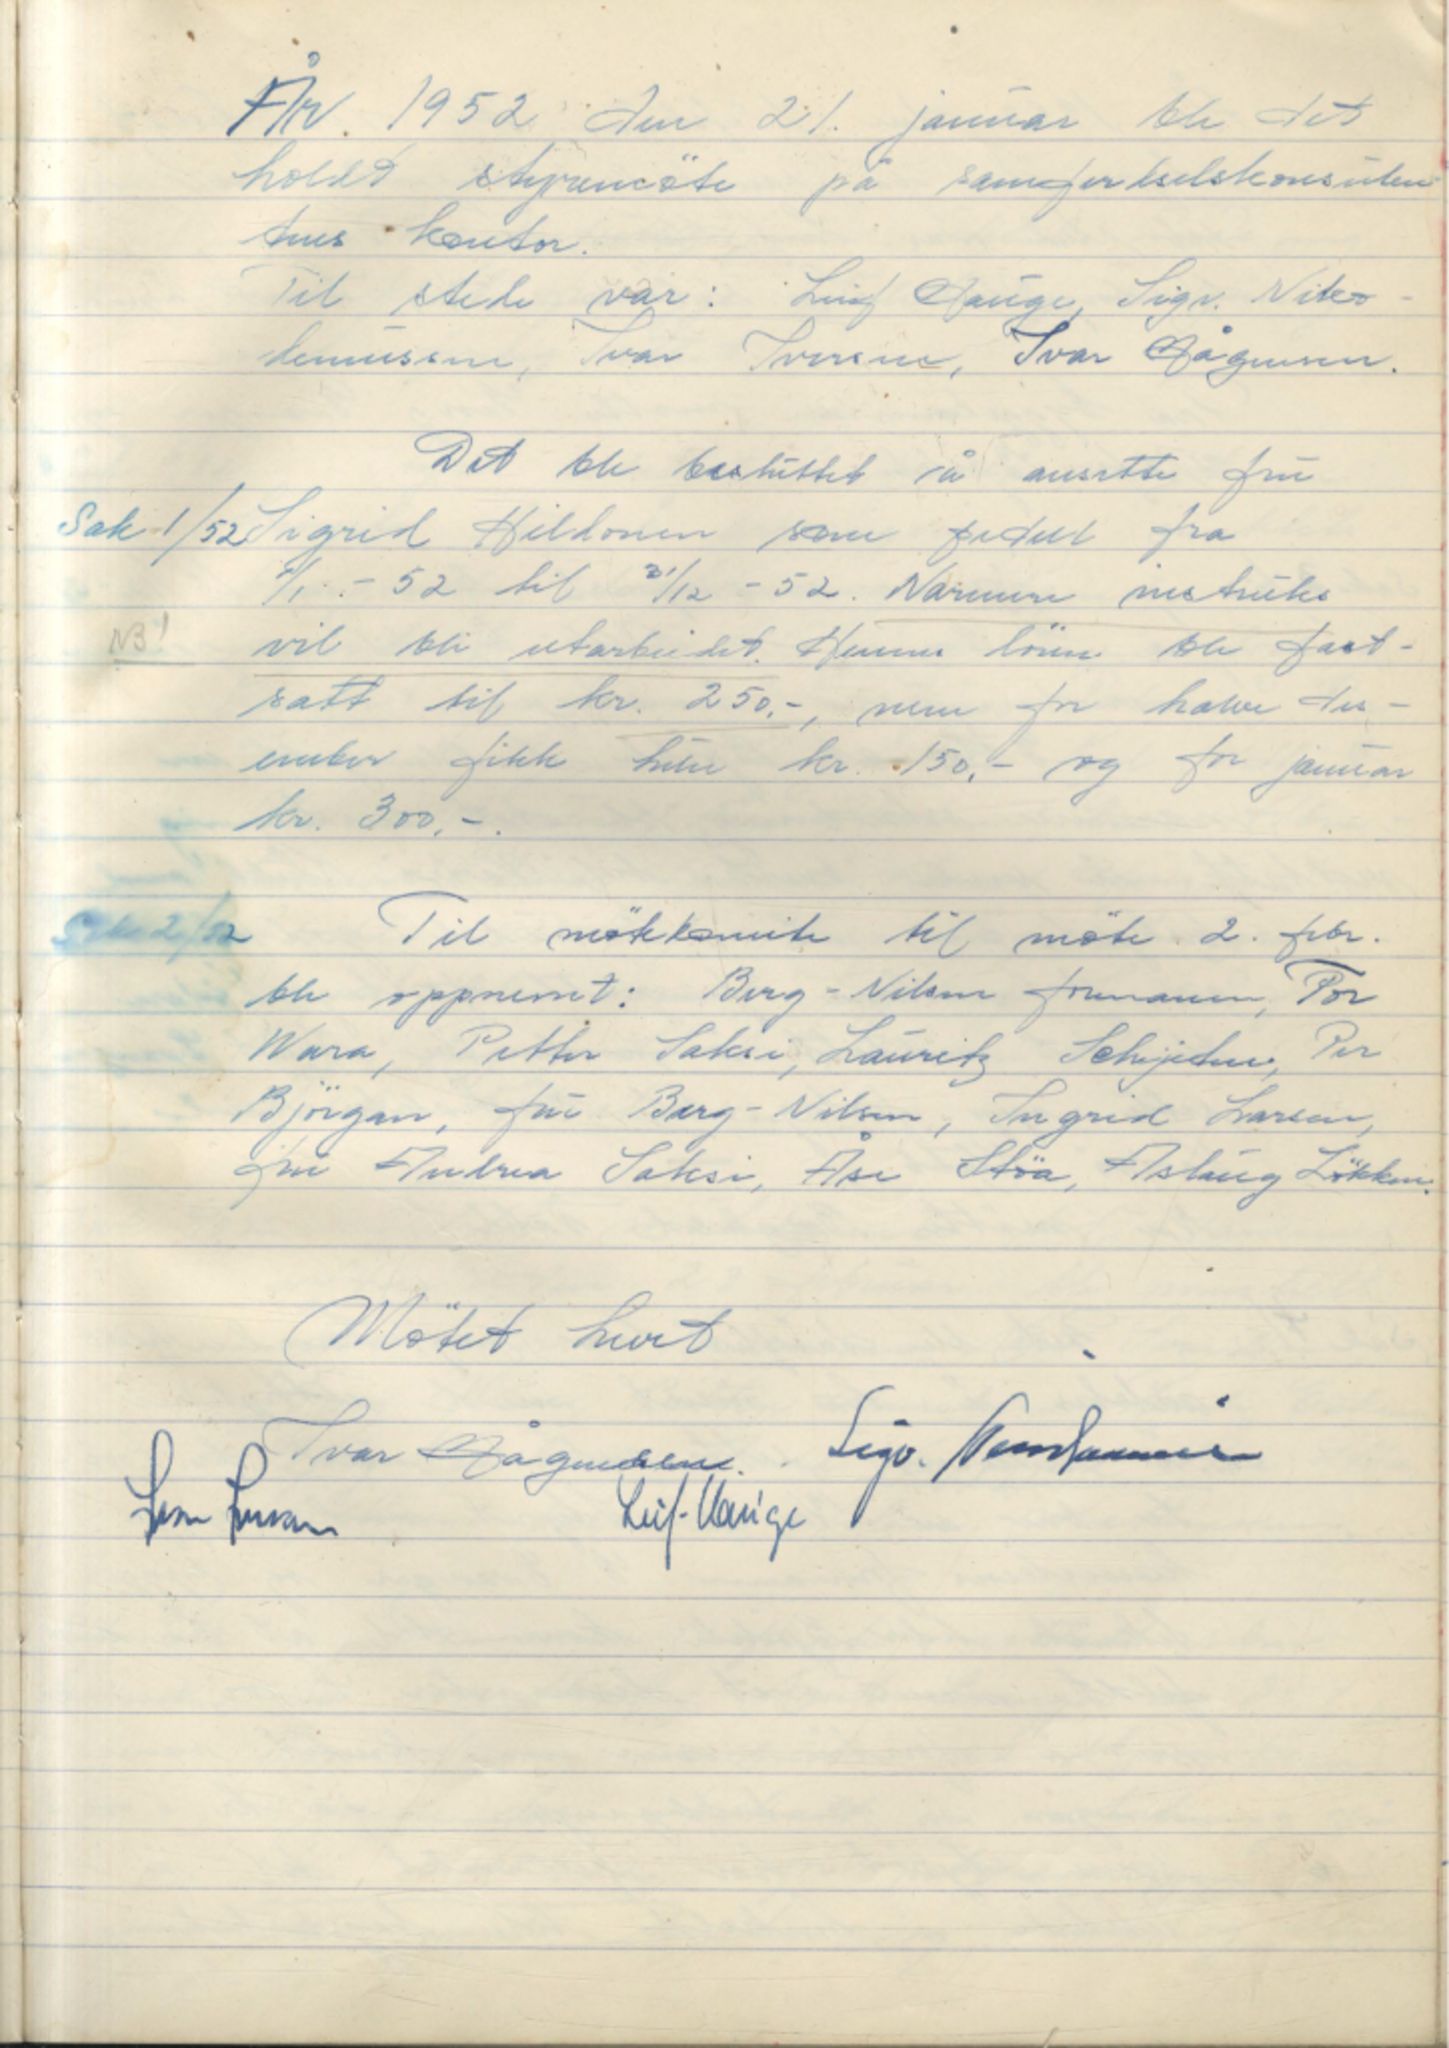 År 1952 den 21. januar ble det
holdt styremöte på samferdselskonsulen-
tens kontor.
Til stede var: Leif Hauge, Sigv. Niko-
demussen, Ivar Iversen, Ivar Hågensen.
Det ble besluttet å ansette frü
Sak 1/52 Sigrid Hildonen som pedell fra
1/1 - 52 til 31/12 - 52. Nærmere instruks
NB! vil bli utarbeidet. Hennes lönn ble fast-
satt til kr. 250,-, men for halve des-
ember fikk hün kr. 150,- og for januar
kr. 300,-.
Sak 2/52 Til mötekomite til möte 2. febr.
ble oppnevnt: Berg-Nilsen formann, Tor
Wara, Petter Saksi, Lauritz Schjetne, Per
Björgan, frü Berg-Nilsen, Ingrid Larsen,
frü Andrea Saksi, Åse Stöa, Aslaug Lökken.
Mötet hevet
Ivar Hågensen. Sigv.
Leif Hauge